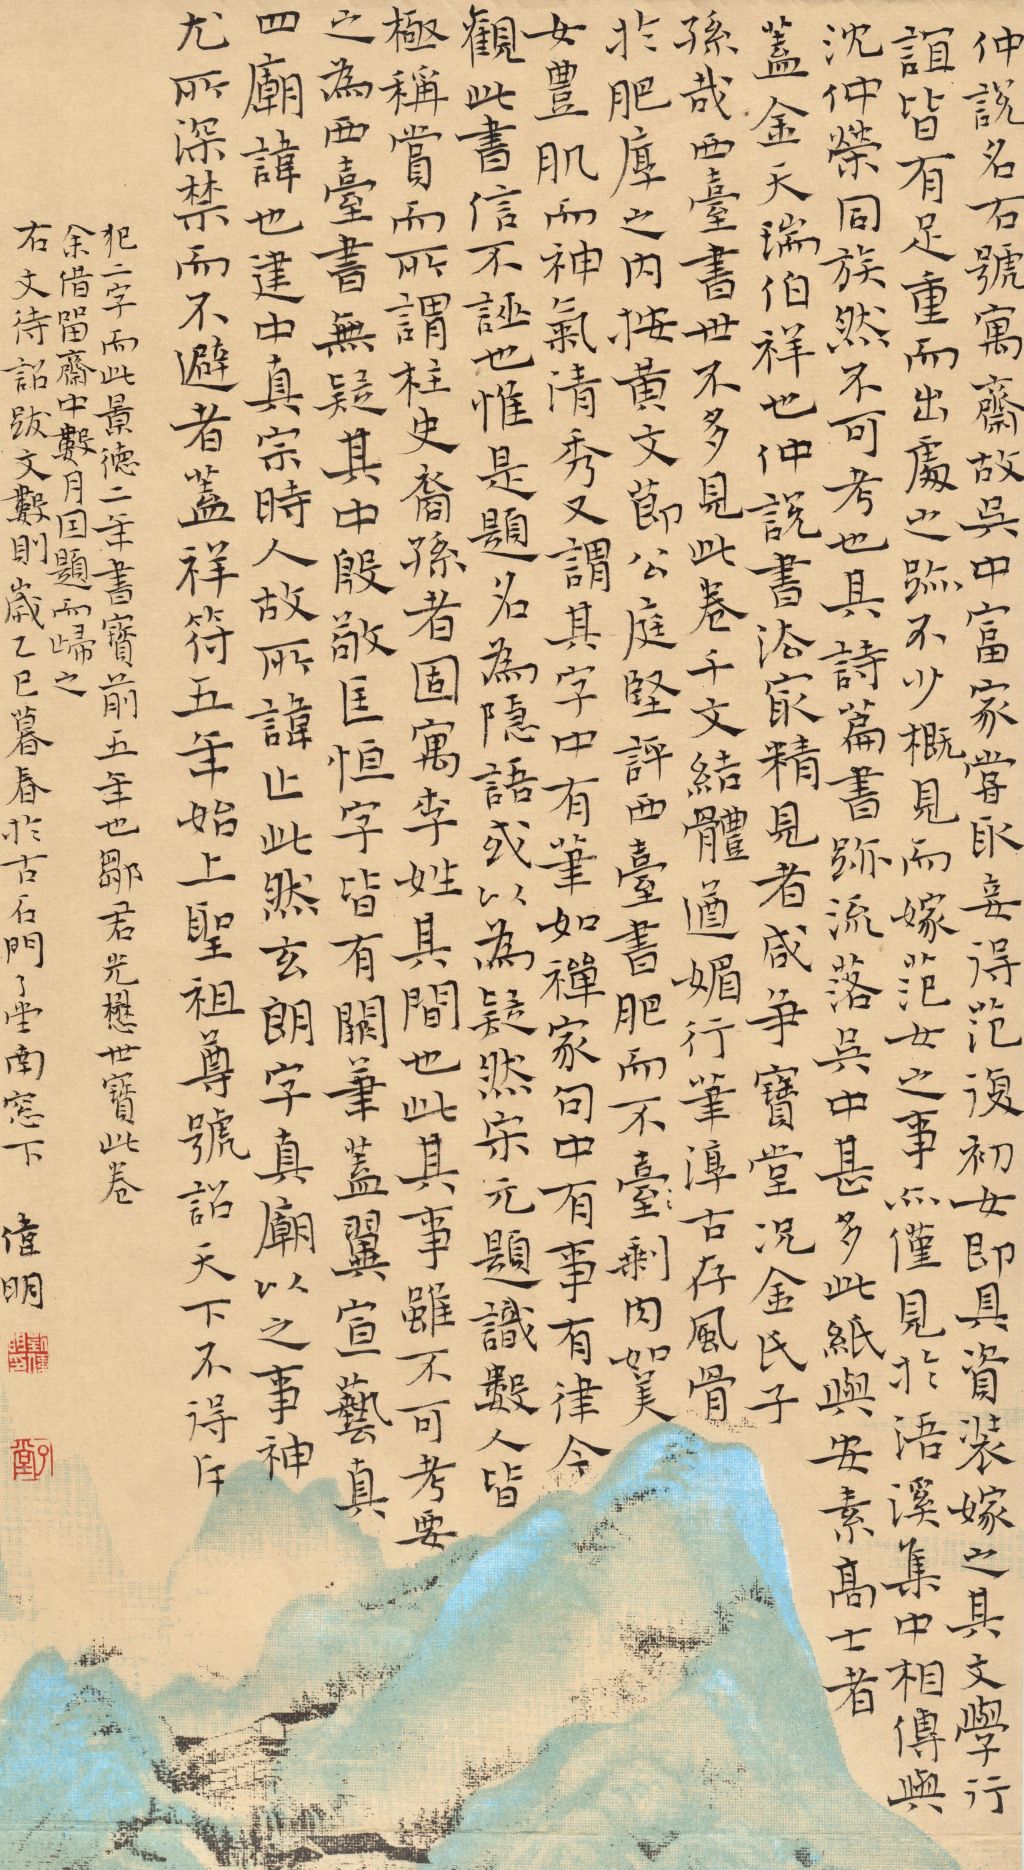 仲說名石號寓齋故吳中富家嘗取妾得范復初女即具資裝嫁之其文學行
誼皆有足重而出處之跡不少概見而嫁范女之事亦僅見於浯溪集中相傳與
沈仲榮同族然不可考也其詩篇書跡流落吳中甚多此紙與安素高士者
蓋金天瑞伯祥也仲說書法家精見者咸爭寶堂況金氏子
孫哉西臺書世不多見此卷千文結體遒媚行筆淳古存風骨
於肥厚之內按黃文節公庭堅評西臺書肥而不臺剩肉如美
女豐肌而神氣清秀又謂其字中有筆如禪家句中有事有律今
觀此書信不誣也惟是題名為隱語或以為疑然宋元題識數人皆
極稱賞而所謂柱史裔孫者固寓李姓其間也此其事雖不可考要
之為西臺書無疑其中殷敬匡恒字皆有闕筆蓋翼宣藝真
四廟諱也建中真宗時人故所諱止此然玄朗字真廟以之事神
尤所深禁而不避者蓋祥符五年始上聖祖尊號詔天下不得斥
犯二字而此景德二年書寶前五年也鄒君光懋世寶此卷
余借留齋中數月因題而歸之
右文待詔跋文數則歲乙巳暮春於古石門了堂南窗下
偉明